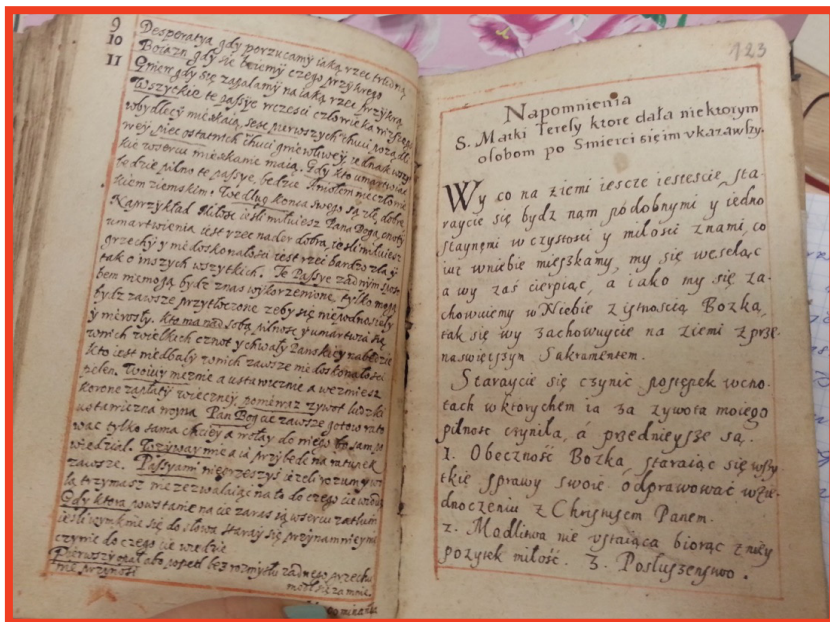 9 Desperatya gdy porzucamy iaką rzec trudną
10 Boiazn gdy się boiemy czego przykrego
11 Gniew gdy się zapalamy na iaką rzec przykrą
Wszyckie te passye w częsci człowieka nizszey
wbydlęcy mieskaią, sesc pierwszych chuci pożądli
wey piec ostatnich chuci gniewliwey iednak wszy
kie wsercu mieskanie maią. Gdy kto umartwiac
będzie pilno te passye, będzie Aniołem nie człowie
kiem ziemskim. Według konca swego są złe, dobre,
Naprzykład Miłosc iesli miłuiesz Pana Boga, cnoty
umartwienia iest rzec nader dobra, iesli miłuiesz
grzechy y niedoskonałosci iest rzec bardzo zła, y
tak o inszych wszytkich. Te Passye zadnym sposo
bem niemogą bydz znas wykorzenione, tylko mogą
bydz zawsze przytłoczone zeby się niepodnosiły
y nierosły. kto ma nad sobą pilnosc y umartwia się
wnich wielkich cznot y chwały Panskiey nabędzie
kto iest niedbały wnich zawsze niedoskonałosci
pelen. Woiuy męznie a ustawicznie a wezmiesz
koronę zapłaty wieczney, poniewaz zywot ludzki
ustawiczna woyna Pan Bog cie zawsze gotow rato
wac tylko sama chciey a wołay do niego bo sam po
wiedział. Wzyway mie a ia przybędę na ratunek
zawsze. Passyami nie grzeszysz iezeli rozumy wo
lą trzymasz nie zezwalaiąc na to do czego cie wiodą
Gdy ktora powstanie na cie zaras ią wsercu zatłum
iesli wymknie się do słowa staray się przynamniey nie
czynic do czego cie wiedzie
Pierwszy zapał abo popęd bez rozmysłu zadnego grzechu
nie przynosi
123
Napomnienia
S. Matki Teresy ktore dała niektorym
osobom po Smierci się im vkazawszy.
Wy co na ziemi iescze iestescie, sta-
raycie się bydz nam podobnymi y iedno
staynęmi w czystosci y miłosci znami, co
iuz wniebie mieszkamy, my się weseląc
a wy zas cierpiąc, a iako my się za-
chowuiemy w Niebie z istnoscią Bozką,
tak się wy zachowuycie na ziemi z prze-
naswiętszym Sakramentem.
Staraycie się czynic postępek wcno-
tach w ktorychem ia za zywota moiego
pilnosc czyniła, á przednieysze są.
1. Obecnosc Bozka, staraiąc się wszy
tkie sprawy swoie odprawowac wzie-
dnoczeniu z Chrystusem Panem.
2. Modlitwa nie vstaiąca biorąc z niey
pozytek miłosc. 3. Posłuszenstwo.